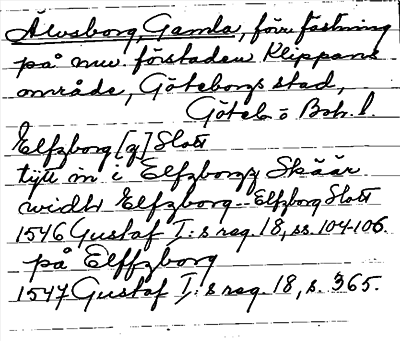 Älvsborg, Gamla, förr fästning
på nuv. förstaden Klippans
område, Göteborgs stad,
Göteb. o Boh. l.
Elfzborg [z] Slott
tijtt in i Elfzborgz Skäär
widh Elfzborg--Elfzborg Slott
1546 Gustaf I:s reg. 18, ss. 104-106.
på Elffzborg
1547 Gustaf I:s reg. 18, s. 365.